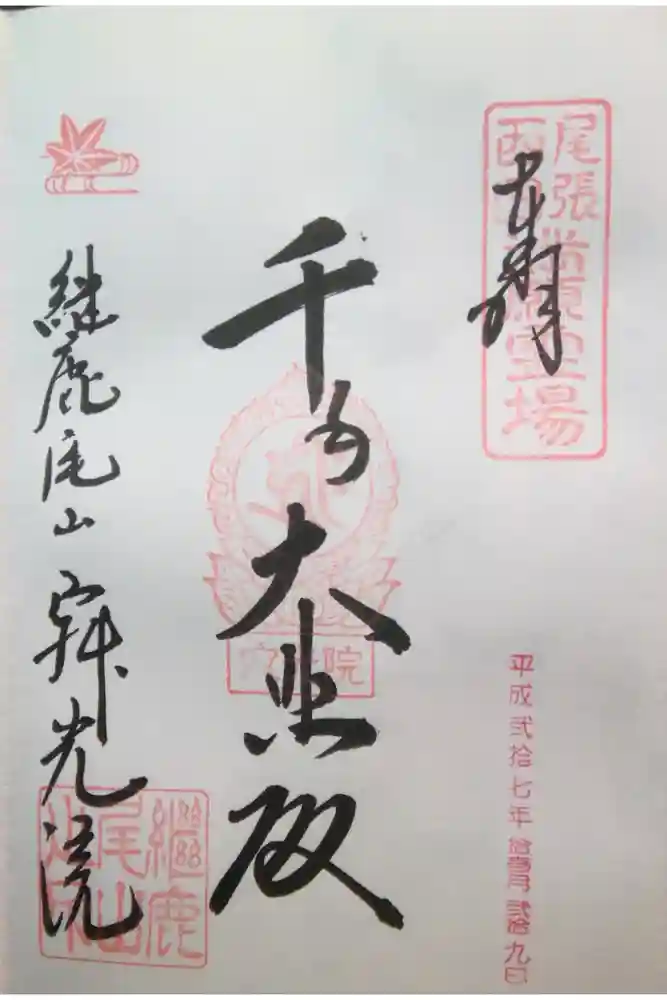 奉拝
尾張
西国
願霊場
平成弐拾七年拾壹月弐拾九日
千手大悲殿
継鹿尾山 寂光院
繼鹿
尾山